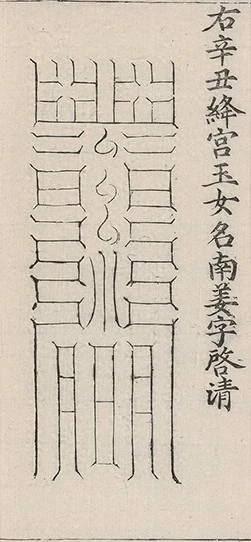 右辛丑絳宮玉女名南姜字啓清